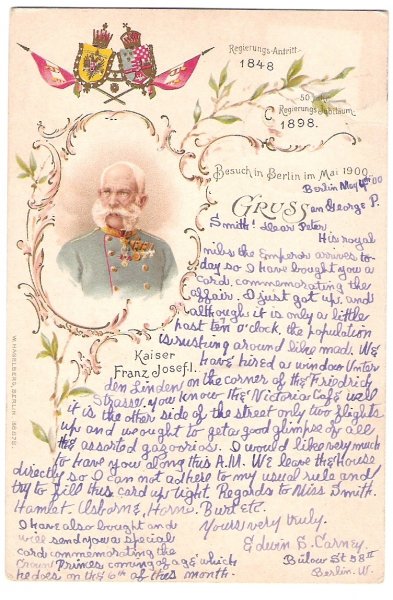 Regierungs-Antritt
1848
50 Jähr.
Regierungs Jubiläum
1898.
Besuch in Berlin im Mai 1900.
Berlin May 4th 00
GRUSS an George P.
Smith! Dear Peter,
His royal
nibs the Emperor arrives to-
day so I have bought you a
card, commemorating the
affair. I just got up, and
although it is only a little
past ten o'clock, the population
is rushing around like mad. We
have hired a window Unter
den Linden, on the corner of the Friedrich
Strasse, you know the Victoria Café well
it is the other side of the street only two flights
up and we ought to get a good glimpse of all
the assorted gazoorios. I would like very much
to have you along this A.M. We leave the House
directly so I can not adhere to my usual rule and
try to fill this card up tight. Regards to Miss Smith.
Hamlet, Osborne, Horni, Burt etc.
Yours very truly.
Edwin S. Carney
Bülow St 58 II
Berlin. W.
I have also bought and
will send you a special
card commemorating the
Crown Princes coming of age which
he does on the 6th of this month.
Kaiser
Franz Josef I.
W. HAGELBERG, BERLIN.